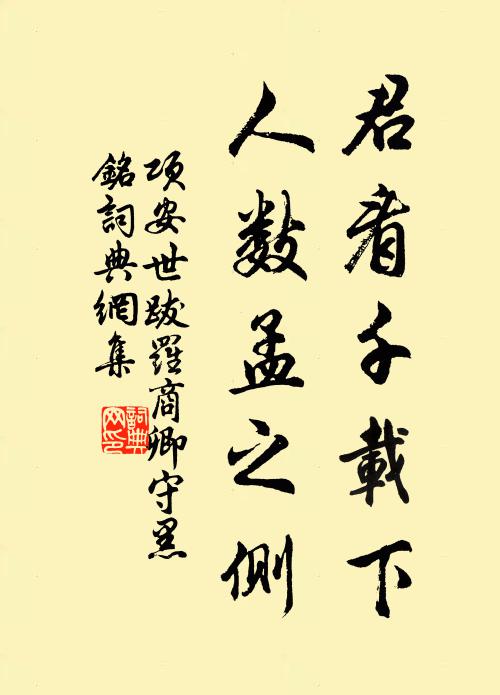 君看千載下
人數孟之側
項安世跋羅商卿守黑
銘詞典網集
詞典网印